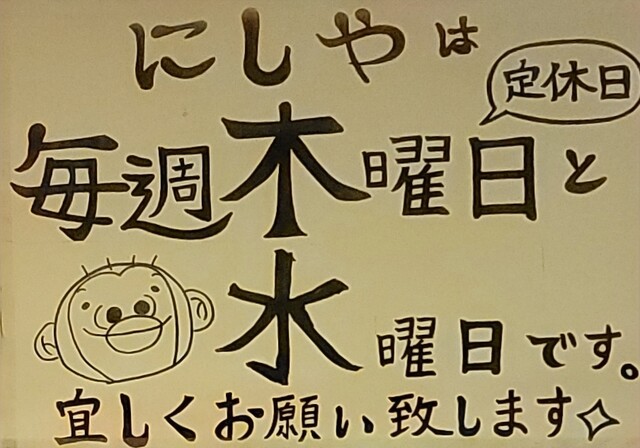 にしやは
定休日
毎週木曜日と
水曜日です。
宜しくお願い致します✧